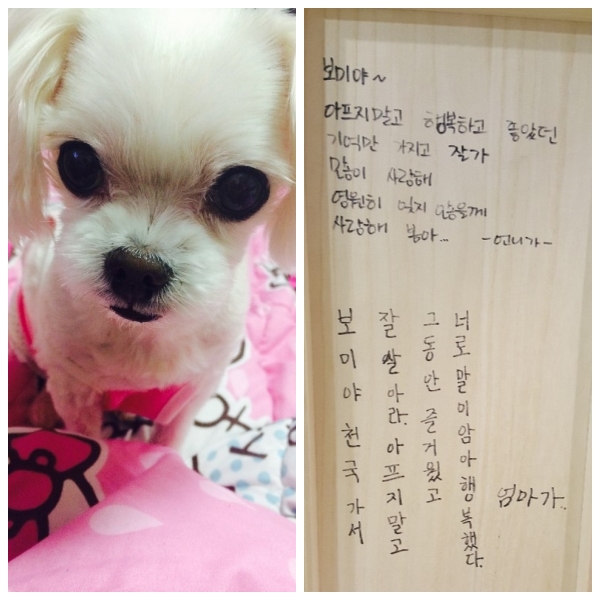 보미야~
아프지말고 행복하고 좋았던
기억만 가지고 잘가
많이 사랑해
영원히 잊지 않을께
사랑해 봄아... -언니가-
보미야 천국가서
잘 살아라. 아프지말고
그동안 즐거웠고
너로말이암아 행복했다.
엄마가..